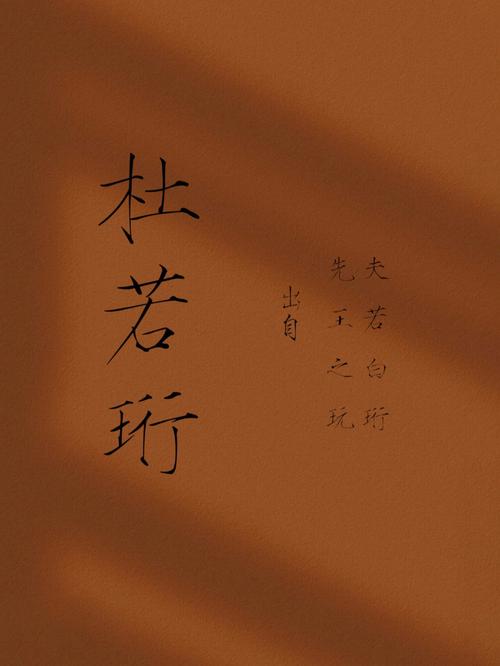 夫若白珩
先王之玩
出自
杜若珩